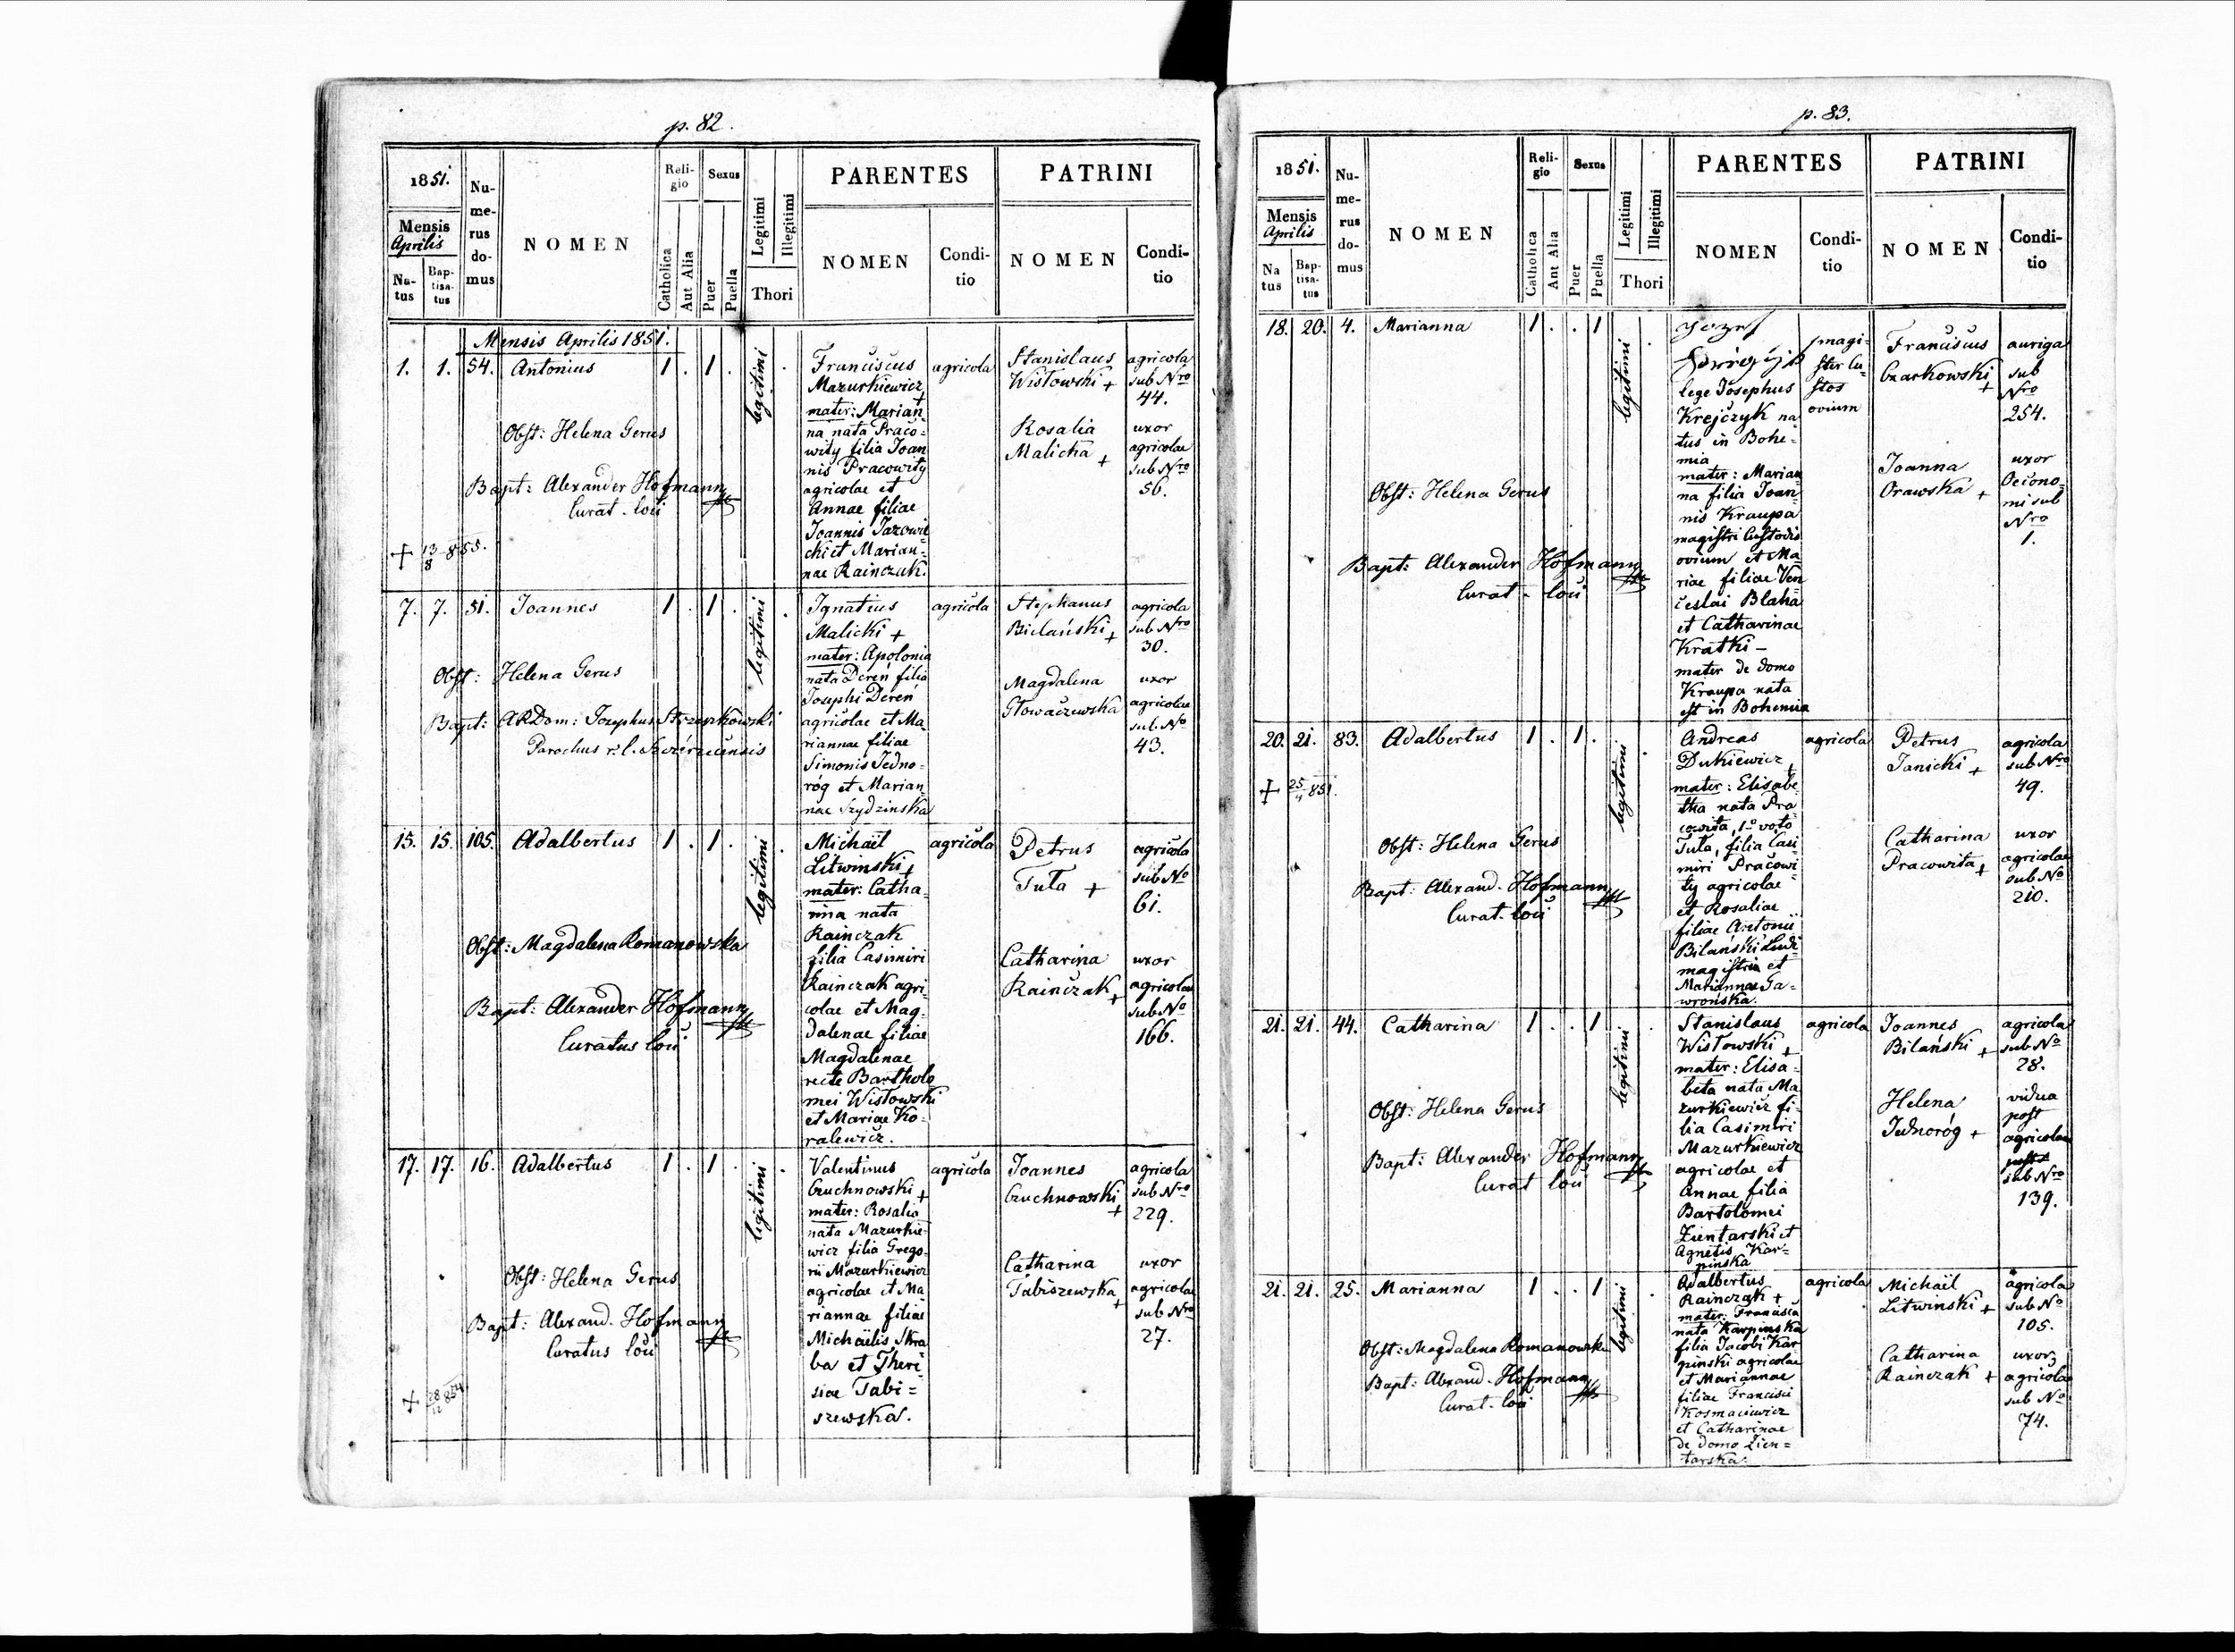 p. 82.
1851.
Mensis
Aprilis
Na-
tus
Bap-
tisa-
tus
Nu-
me-
rus
do-
mus
NOMEN
Reli-
gio
Catholica
Aut Alia
Sexus
Puer
Puella
Legitimi
Illegitimi
Thori
PARENTES
NOMEN
Condi-
tio
PATRINI
NOMEN
Condi-
tio
Mensis Aprilis 1851.
1. 1. 54. Antonius 1 . 1 .
legitimi
Obst: Helena Gerus
Bapt: Alexander Hofmann
Curat. loci
+ 13/8 855.
Franciscus
Mazurkiewicz +
mater: Marian
na nata Praco-
wity filia Joan
nis Pracowity
agricolae et
Annae filiae
Joannis Jazowi
cki et Marian-
nae Rainczak.
agricola
Stanislaus
Wisłowski +
agricola
sub Nro
44.
Rosalia
Malicka +
uxor
agricolae
sub Nro
56.
7. 7. 51. Joannes 1 . 1 .
legitimi
Obst: Helena Gerus
Bapt: ARDom: Josephus Strzepkowski
Parochus r. l. Szczérzecensis
Ignatius
Malicki +
mater: Apolonia
nata Dereń filia
Josephi Dereń
agricolae et Ma
riannae filiae
Simonis Jedno-
róg et Marian
nae Szydzinska
agricola
Stephanus
Bielański +
agricola
sub Nro
30.
Magdalena
Głowaczewska
uxor
agricolae
sub No
43.
15. 15. 105. Adalbertus 1 . 1 .
legitimi
Obst: Magdalena Romanowska
Bapt: Alexander Hofmann
Curatus loci
Michaël
Litwinski +
mater: Catha-
rina nata
Rainczak
filia Casimiri
Rainczak agri-
colae et Mag-
dalenae filiae
Magdalenae
recte Bartholo
mei Wisłowski
et Mariae Ko-
ralewicz.
agricola
Petrus
Tuta +
agricola
sub No
61.
Catharina
Rainczak +
uxor
agricolae
sub No
166.
17. 17. 16. Adalbertus 1 . 1 .
legitimi
Obst: Helena Gerus
Bapt: Alexand. Hofmann
Curatus loci
+ 28/12 854
Valentinus
Czuchnowski +
mater: Rosalia
nata Mazurkie-
wicz filia Grego-
rii Mazurkiewicz
agricolae et Ma
riannae filiae
Michaëlis Skra
ba et There
siae Tabi=
szewska.
agricola
Joannes
Czuchnowski +
agricola
sub Nro
229.
Catharina
Tabiszewska +
uxor
agricolae
sub Nro
27.
p. 83.
1851.
Mensis
Aprilis
Na
tus
Bap-
tisa-
tus
Nu-
me-
rus
do-
mus
NOMEN
Reli-
gio
Catholica
Aut Alia
Sexus
Puer
Puella
Legitimi
Illegitimi
Thori
PARENTES
NOMEN
Condi-
tio
PATRINI
NOMEN
Condi-
tio
18. 20. 4. Marianna 1 . . 1
legitimi
Obst: Helena Gerus
Bapt: Alexander Hofmann
Curat. loci
Jozef
lege Josephus
Krejčzyk na
tus in Bohe-
mia
mater: Marian
na filia Joan
nis Kraupa
magistri Custodis
ovium et Ma
riae filiae Ven
ceslai Blaha
et Catharinae
Kratki –
mater de domo
Kraupa nata
est in Bohemia
magi-
ster cu-
stos
ovium
Franciscus
Czarkowski +
auriga
sub
Nro
254.
Joanna
Orawska +
uxor
Oecono-
mi sub
Nro
1.
20. 21. 83. Adalbertus 1 . 1 .
legitimi
+ 25/4 851.
Obst: Helena Gerus
Bapt: Alexand. Hofmann
Curat. loci
Andreas
Dukiewicz +
mater: Elisabe-
tha nata Pra
cowita, 1o voto
Tuta, filia Casi-
miri Pracowi-
ty agricolae
et Rosaliae
filiae Antonii
Bilański Ludi
magistri et
Mariannae Ga-
wrońska.
agricola
Petrus
Janicki +
agricola
sub Nro
49.
Catharina
Pracowita +
uxor
agricolae
sub No
210.
21. 21. 44. Catharina 1 . . 1
legitimi
Obst: Helena Gerus
Bapt: Alexander Hofmann
Curat loci
Stanislaus
Wisłowski +
mater: Elisa-
beta nata Ma
zurkiewicz fi-
lia Casimiri
Mazurkiewicz
agricolae et
Annae filia
Bartolomei
Zientarski et
Agnetis Kar=
pinska
agricola
Joannes
Bilański +
agricola
sub No
28.
Helena
Jednoróg +
vidua
post
agricolam
sub Nro
139.
21. 21. 25. Marianna 1 . . 1
legitimi
Obst: Magdalena Romanowska
Bapt: Alexand. Hofmann
Curat. loci
Adalbertus
Rainczak +
mater: Francisca
nata Karpinska
filia Jacobi Kar
pinski agricolae
et Mariannae
filiae Francisci
Kosmaciewicz
et Catharinae
de domo Zien=
tarska.
agricola
Michaël
Litwinski +
agricola
sub No
105.
Catharina
Rainczak +
uxor
agricolae
sub No
74.